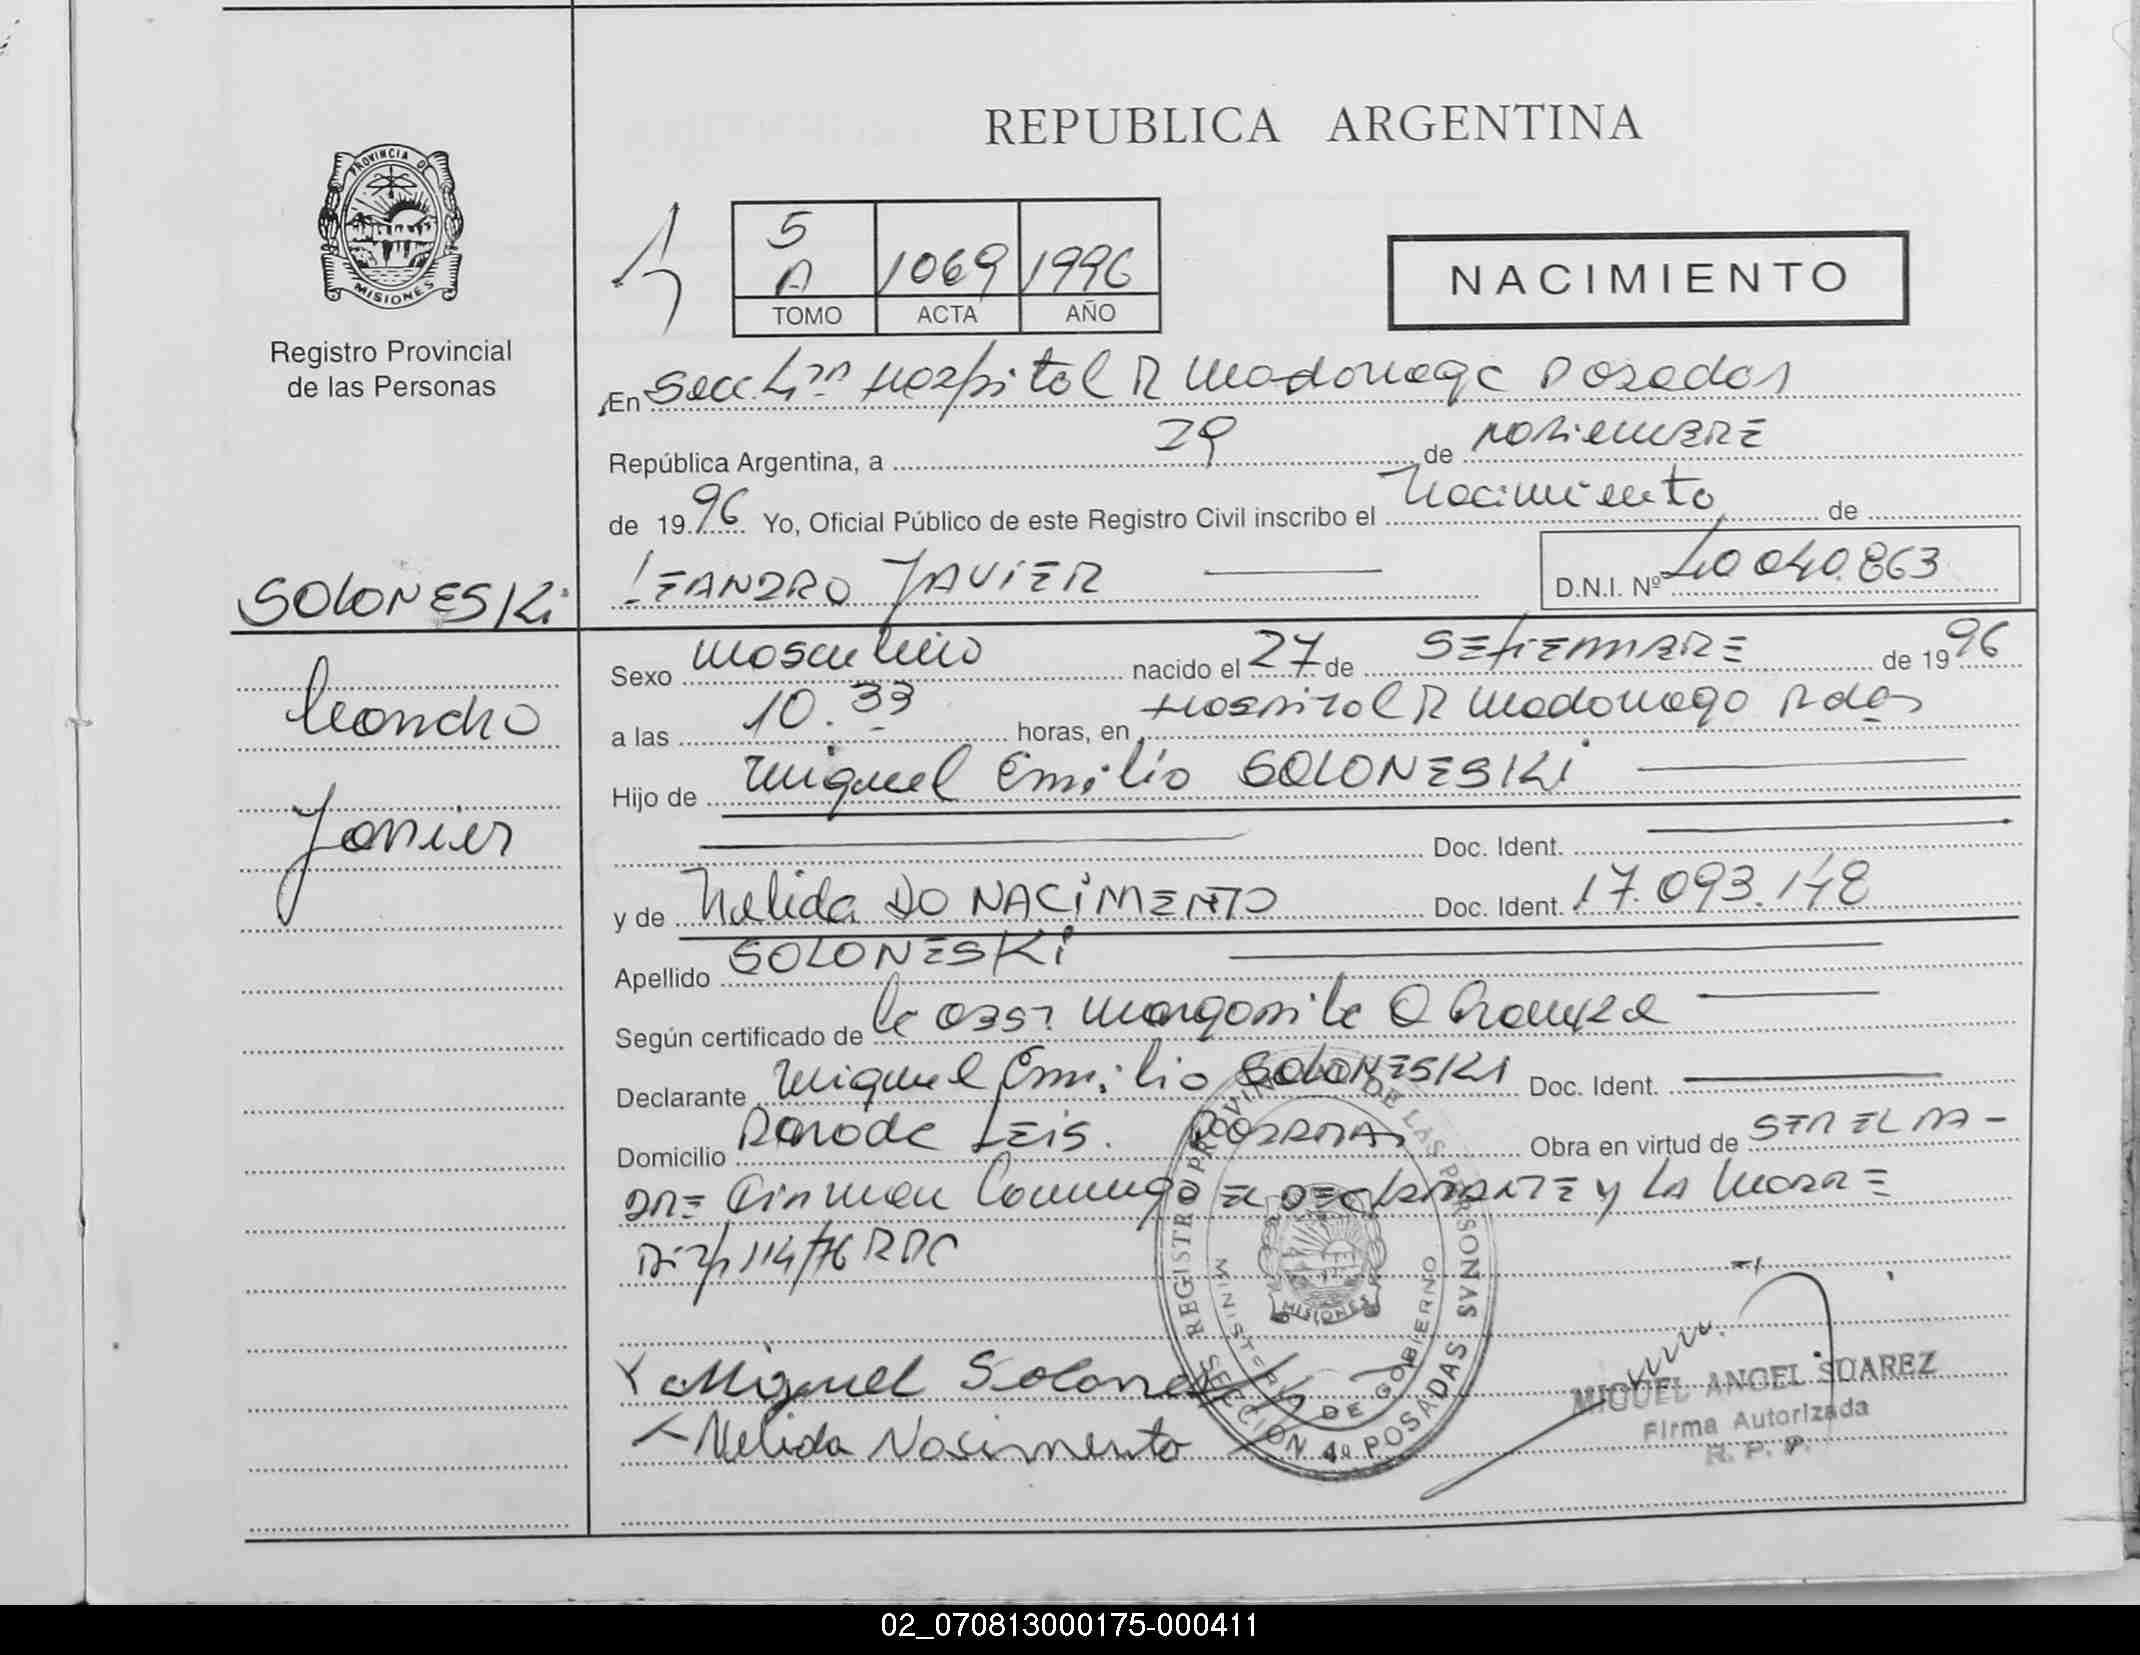 REPUBLICA ARGENTINA
PROVINCIA DE
MISIONES
Registro Provincial
de las Personas
5
A 1069 1996
TOMO ACTA AÑO
NACIMIENTO
En Secc. Hospital R Madariaga Posadas
República Argentina, a 29 de noviembre
de 1996 Yo, Oficial Público de este Registro Civil inscribo el Nacimiento de
SOLONESKi LEANDRO JAViER D.N.I. Nº 40 040.863
Leandro
Javier
Sexo masculino nacido el 27 de SEtiEmBRE de 1996
a las 10.33 horas, en Hospital R Madariaga Pdas
Hijo de Miguel Emilio SOLONESKi
Doc. Ident.
y de Nelida DO NACiMENTO Doc. Ident. 17.093.148
Apellido SOLONESKi
Según certificado de la obst Margarita
Declarante Miguel Emilio SOLONESKi Doc. Ident.
Domicilio Parada Leis. POSADAS Obra en virtud de SER EL PA-
DRE Firman Conmigo EL DECLARANTE y LA MADRE
Disp 114/76 RPC
Miguel Soloneski
Nelida Nacimento
REGISTRO PROVINCIAL DE LAS PERSONAS
MINISTERIO DE GOBIERNO
MISIONES
SECCION 4a POSADAS
MIGUEL ANGEL SUAREZ
Firma Autorizada
R. P. P.
02_070813000175-000411